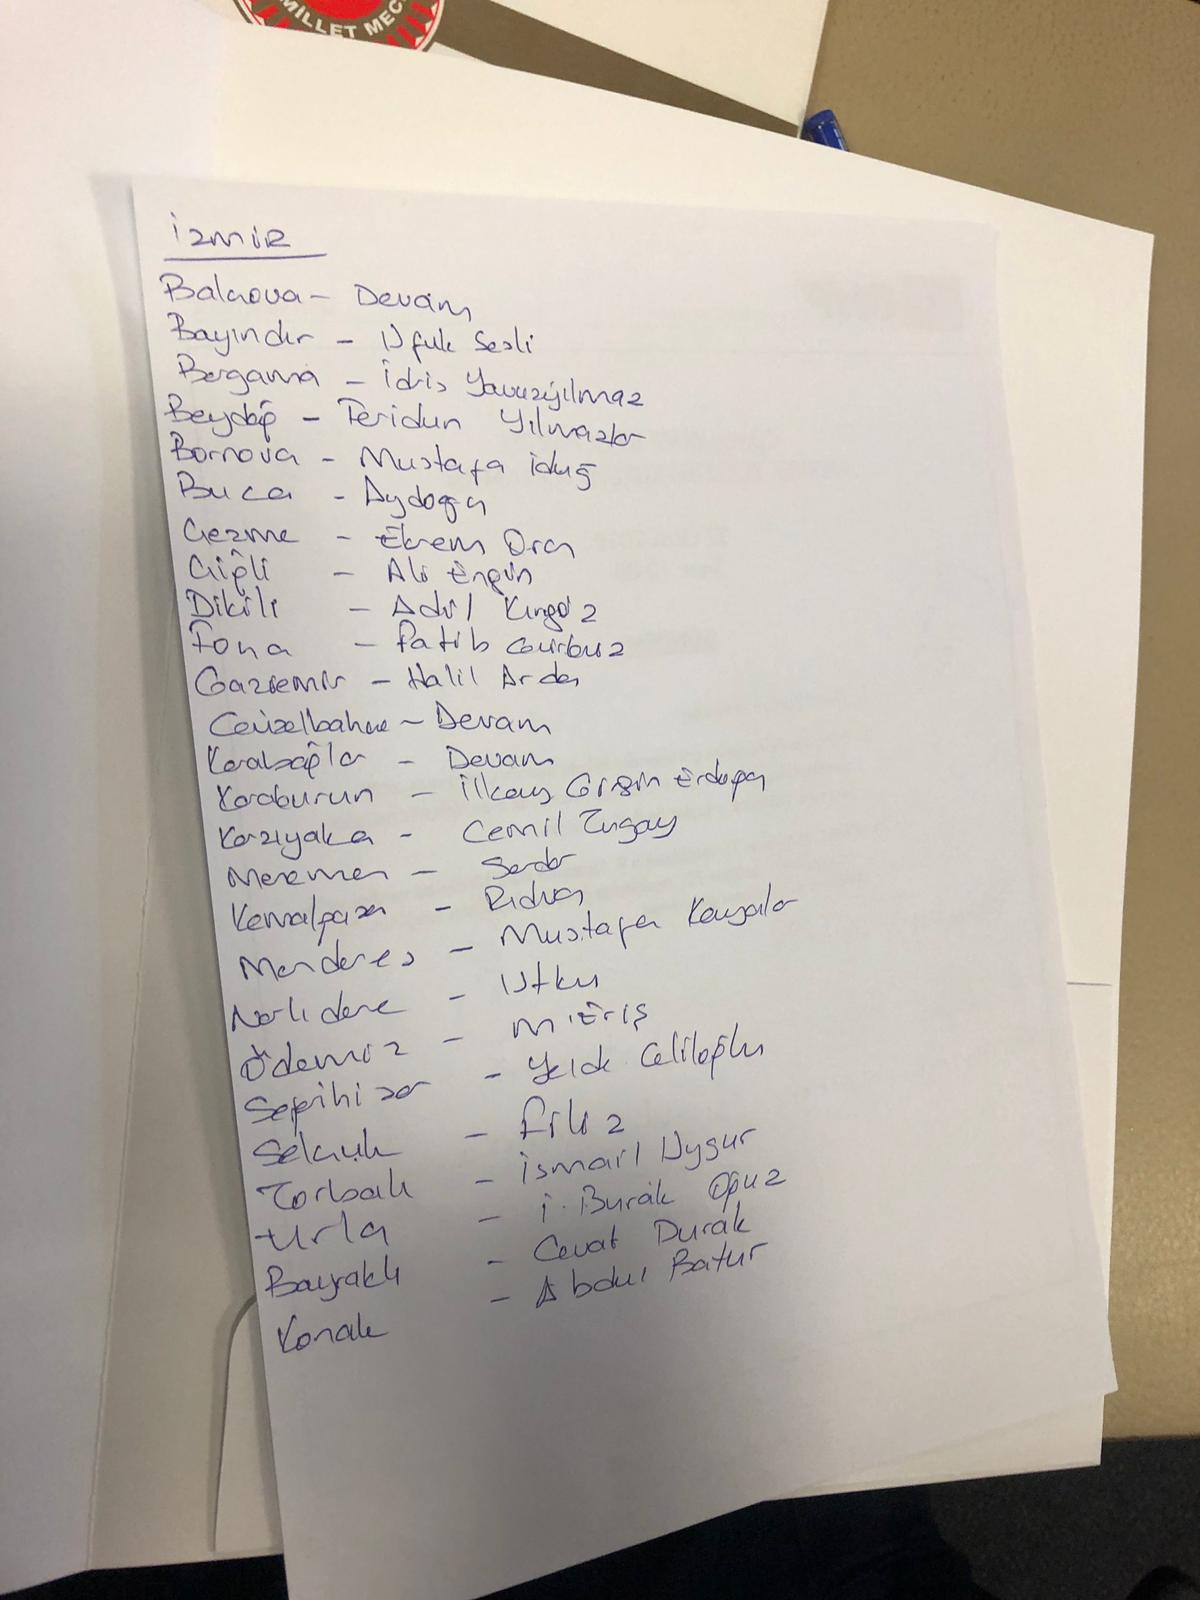 MİLLET MEC
İZMİR
Balçova - Devam
Bayındır - Ufuk Sesli
Bergama - İdris Yavuzyılmaz
Beydağ - Feridun Yılmazlar
Bornova - Mustafa İduğ
Buca - Aydoğan
Çeşme - Ekrem Oran
Çiğli - Ali Engin
Dikili - Adil Kırgöz
Foça - Fatih Gürbüz
Gaziemir - Halil Arda
Güzelbahçe - Devam
Karabağlar - Devam
Karaburun - İlkay Girgin Erdoğan
Karşıyaka - Cemil Tugay
Menemen - Serdar
Kemalpaşa - Rıdvan
Menderes - Mustafa Kayalar
Narlıdere - Utku
Ödemiş - M. Eriş
Seferihisar - Yelda Celiloğlu
Selçuk - Filiz
Torbalı - İsmail Uygur
Urla - İ. Burak Oğuz
Bayraklı - Cevat Durak
Konak - Abdul Batur